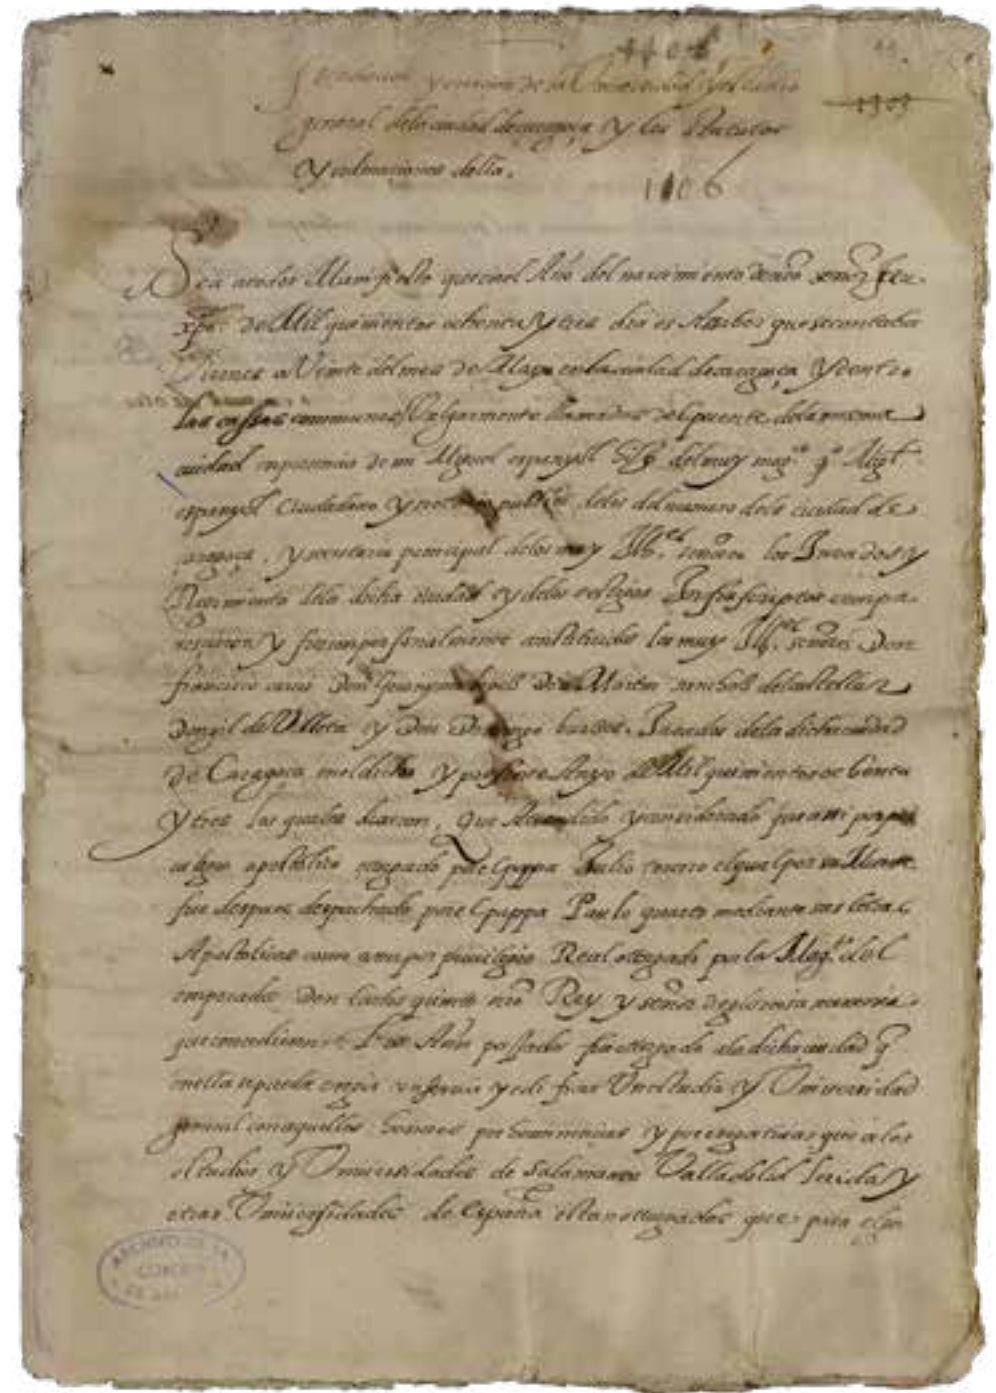 1106
y erection de la Universidad y estudio
general dela ciudad de caragoça y los statutos
y ordinaciones della.
1106
Sea atodos Manifiesto que enel Año del nascimiento de nro señor
xpo de Mil quinientos ochenta y tres dia es Asaber que se contaba
Viernes a Veinte del mes de Mayo en la ciudad de caragoça y dentro
las cassas communes Vulgarmente llamadas del puente dela misma
ciudad en presencia de mi Miguel espanyol del muy mag.co Migl
espanyol Ciudadano y notario publico delos del numero dela ciudad de
caragoça, y secretario principal delos muy Ill.es señores los Jurados y
Regimiento dela dicha ciudad y delos testigos Infrascriptos compa
recieron y fueron personalmente constituidos los muy Ill.es señores Don
francisco Don Don Martin sanchez del castellar
Don gil de y Don Domingo burces. Jurados dela dicha ciudad
de Caragoça en el dicho y presente Anyo de Mil quinientos ochenta
y tres los quales dixeron, Que Attendido y considerado que assi por
apostolico otorgado por el pappa Julio tercero el qual por su Muerte
fue despues despachado por el pappa Paulo quarto mediante sus letras
Apostolicas como assi por privilegio Real otorgado por la Mag.d del
emperador Don Carlos quinto nro Rey y señor de gloriosa memoria
Años passados fue otorgado ala dicha ciudad q
enella se pueda erigir y edificar Un estudio y Universidad
general con aquellos honores y prerogativas que a los
estudios y Universidades de Salamanca Valladolid Lerida y
otras Universidades de españa estan otorgadas que para
ARCHIVO DE LA